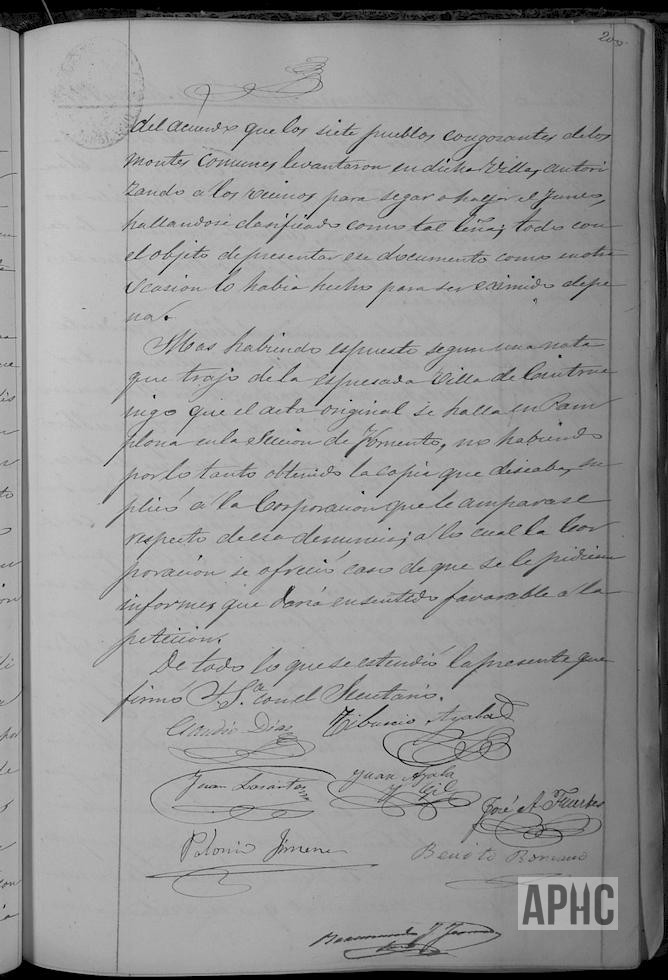 200
del acuerdo que los siete pueblos congozantes de los
montes comunes levantaron en dicha Villa, autori
zando a los vecinos para segar o hacer el Junco,
hallandose clasificado como tal leña; todo con
el objeto de presentar ese documento como en otra
ocasion lo habia hecho para ser eximido de pe
na.
Mas habiendo espuesto segun una nota
que trajo de la espresada Villa de Cintrue
nigo que el acta original se halla en Pam
plona en la seccion de Fomento, no habiendo
por lo tanto obtenido la copia que deseaba, su
plicó á la Corporacion que le amparase
respecto de esa denuncia; á lo cual la Cor
poración se ofreció caso de que se le pidiesen
informes que daria en sentido favorable á la
petición.
De todo lo que se estendió la presente que
firmó S. Sª con el Secretario.
Claudio Diaz Tiburcio Ayala
Juan Lasantas Juan Ayala
y Gil
José A Fuertes
Polonio Jimenez Benito
APHC